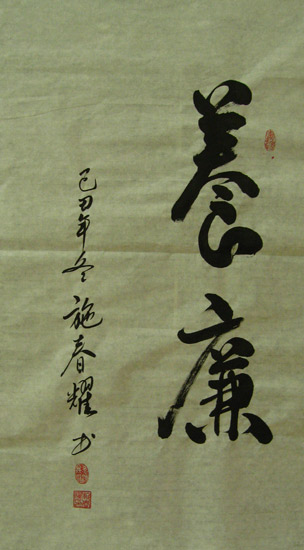 養廉
己丑年冬施春耀书